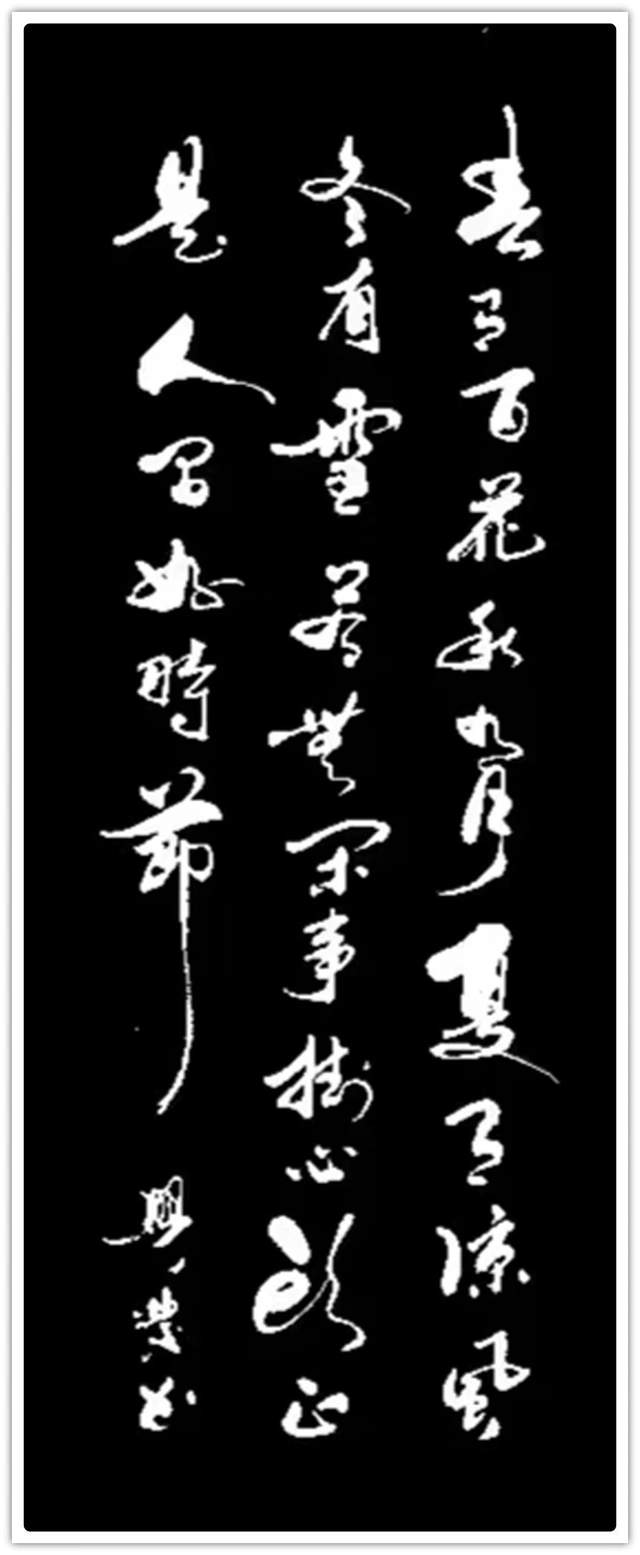 春有百花秋有月夏有涼風
冬有雪若無閑事掛心頭正
是人間好時節
興榮书